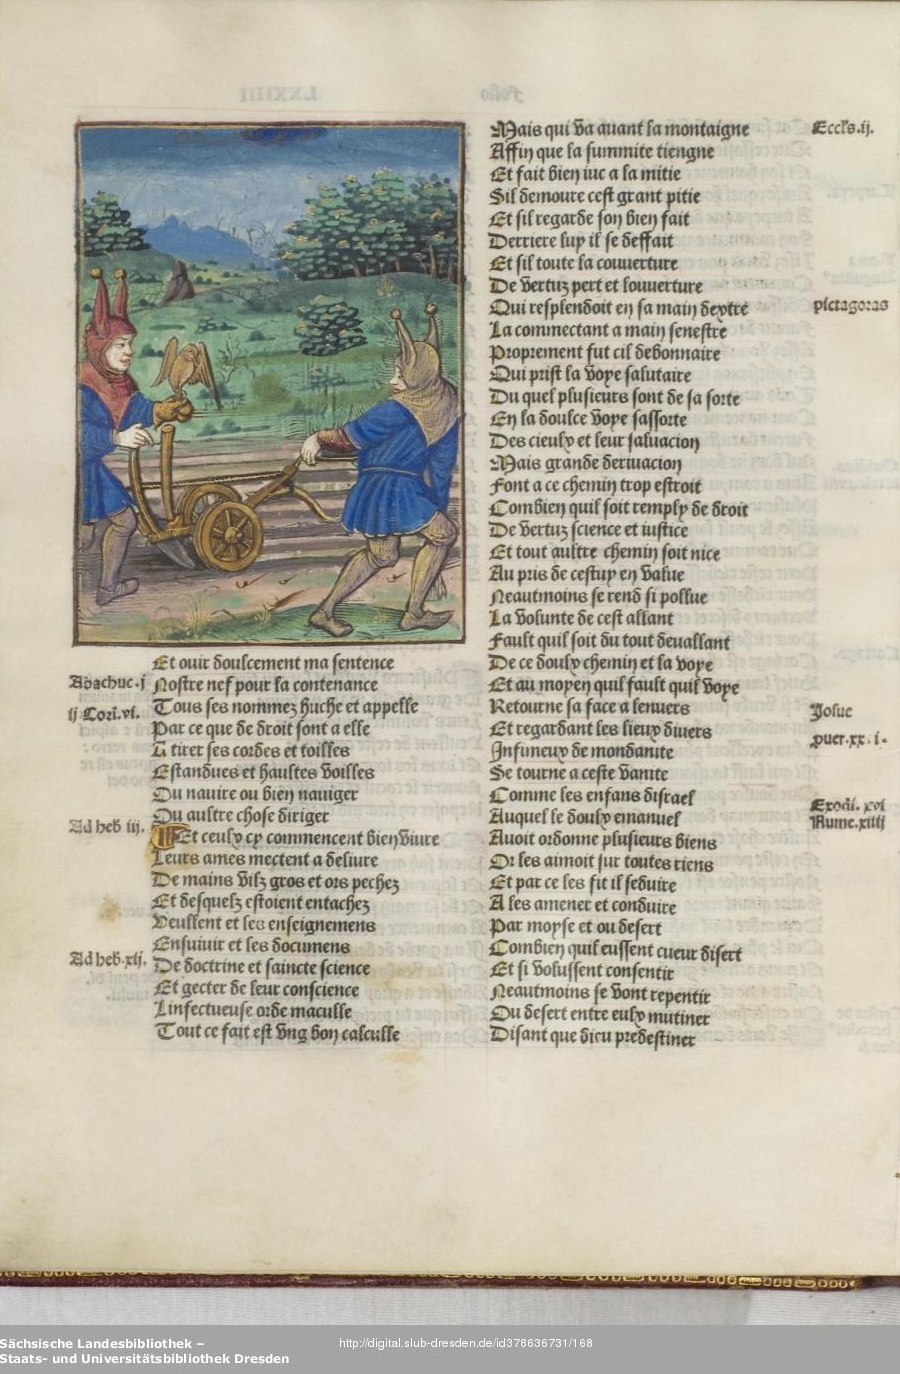 Et ouir doulcement ma sentence
Abachuc.j
Nostre nef pour la contenance
ij Cori.vi.
Tous ses nommez huche et appelle
Par ce que de droit sont a elle
A tirer ses cordes et toilles
Estandues et haultes voilles
Ou nauire ou bien nauiger
Ou aultre chose diriger
Ad heb iij.
Et ceulx cy commencent bien viure
Leurs ames mectent a deliure
De mains vilz gros et ors pechez
Et desquelz estoient entachez
Veullent et les enseignemens
Ensuiuir et les documens
Ad heb.xij.
De doctrine et saincte science
Et gecter de leur conscience
Linfectueuse orde maculle
Tout ce fait est vng bon calculle
Mais qui va auant la montaigne
Eccl's.ij.
Affin que la summite tiengne
Et fait bien iuc a la mitie
Sil demoure cest grant pitie
Et sil regarde son bien fait
Derriere luy il se deffait
Et sil toute la couuerture
De vertuz pert et louuerture
Qui resplendoit en sa main dextre
pictagoras
La commectant a main senestre
Proprement fut cil debonnaire
Qui prist la voye salutaire
Du quel plusieurs sont de sa sorte
En la doulce voye sassorte
Des cieulx et leur saluacion
Mais grande deriuacion
Font a ce chemin trop estroit
Combien quil soit remply de droit
De vertuz science et iustice
Et tout aultre chemin soit nice
Au pris de cestuy en value
Neautmoins se rend si pollue
La volunte de cest allant
Fault quil soit du tout deuallant
De ce doulx chemin et la voye
Et au moyen quil fault quil voye
Retourne sa face a lenuers
Josue
Et regardant les lieux diuers
puer.xx.i.
Infineux de mondanite
Se tourne a ceste vanite
Comme les enfans disrael
Exodi.xvi
Auquel le doulx emanuel
Nume.xiiij
Auoit ordonne plusieurs biens
Or les aimoit sur toutes riens
Et par ce les fit il seduire
A les amener et conduire
Par moyse et ou desert
Combien quil eussent cueur disert
Et si volussent consentir
Neautmoins se vont repentir
Ou desert entre eulx mutiner
Disant que dieu predestiner
Sächsische Landesbibliothek –
Staats- und Universitätsbibliothek Dresden
http://digital.slub-dresden.de/id378636731/168